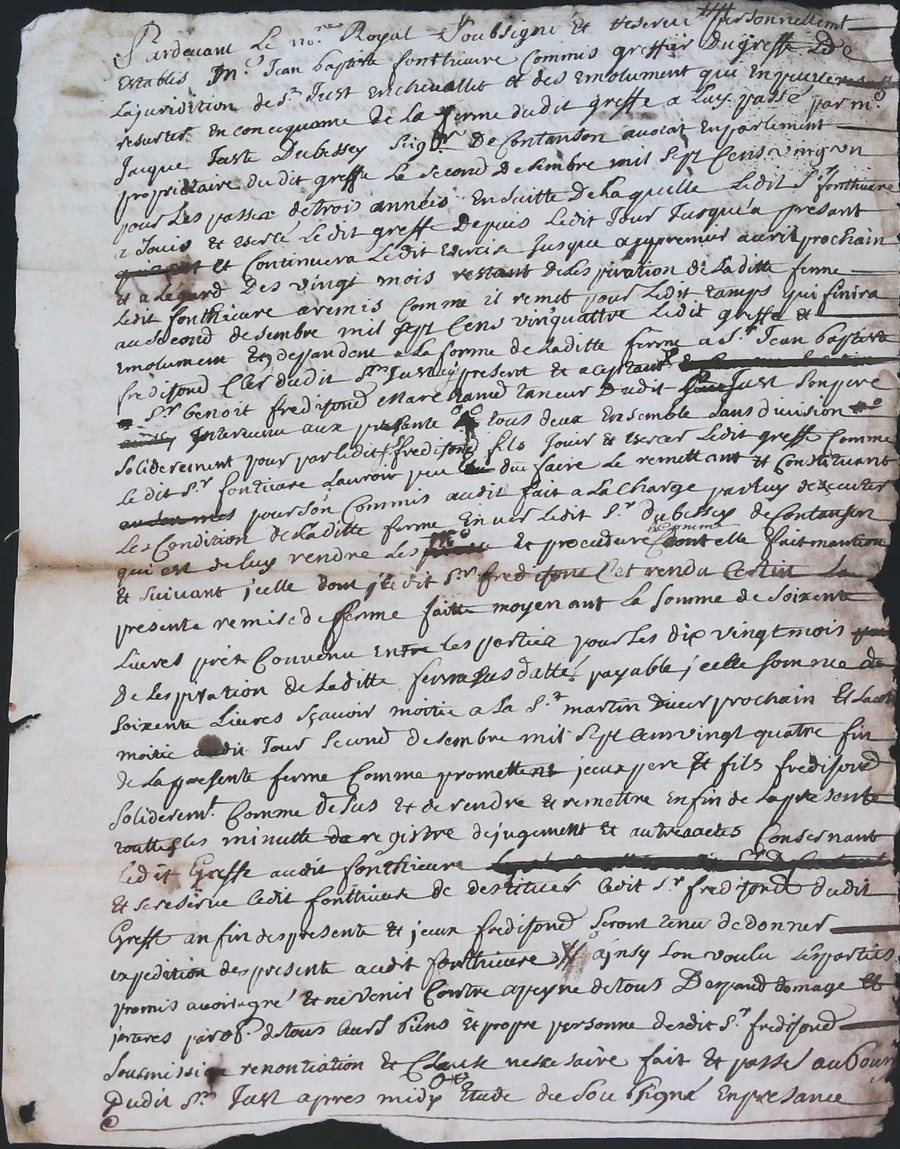 Pardevant Le no.re Royal Soubsigné Et Reservé personnellemt
Establis M.e Jean baptiste fonthieure Commis greffier Du greffe De
La juridition de St Just En chevallet et des Emolument qui En peuvent
resurter En Consequance de La ferme du dit greffe a Luy passé par m.e
Jacque Juste Dubessey Seig.r De Contanson avocat En parlement
propriétaire du dit greffe Le second desembre mil sept Cens vingt un
pour Les passer de trois années En suitte De Laquelle Ledit Sr fonthieure
a Jouis et Exercé Le dit greffe Depuis Ledit Jour Jusqu'a presant
et Continuera Ledit Exercise Jusque au premier avril prochain
et a L'égard Des vingt mois restant de L'espiration de La ditte ferme
Ledit fonthieure a remis Comme il remet pour Ledit tamps qui finira
au second desembre mil sept Cens vingt quattre Ledit greffe et
Emolument En dependent a La forme de La ditte ferme a Sr Jean baptiste
fredifond Clerc dudit St Just ycy present et aceptant
Sr benoit fredifond Marchand taneur Dudit Just son pere
Intervenu aux presente tous deux Ensemble sans division
soliderement pour par ledit Sr fredifond fils Jouir et Exercer Ledit greffe Comme
Le dit Sr fonthieure L'auroit peu du faire Le remettant et Constituant
pour son Commis audit fait a La Charge par Luy d'executer
Les Condition de La ditte ferme Enver Ledit Sr dubessey de Contanson
qui est de Luy rendre Les et procedure dont elle fait mantion
Et suivant jcelle dont Ledit Sr fredifond C'est rendu Certin La
presente remise de ferme faitte moyenant La somme de soixente
Livres prix Convenu Entre les parties pour Les dix vingt mois
De L'espiration de La ditte ferme susdatté payable jcelle somme de
soixente Livres sçavoir moitié a La St martin Diver prochain Et L'autre
moitié audit Jour second desembre mil sept Cens vingt quatre fin
de La presente ferme Comme promettent jceux pere Et fils fredifond
soliderem.t Comme desus et de rendre et remettre En fin de La presente
touttes les minutte de registre de jugement et autre actes Consernant
Ledit Greffe audit fonthieure
Et se reserve Ledit fonthieure de destituer Ledit Sr fredifond dudit
Greffe an fin des presente et jceux fredifond seront tenu de donner
expedition des presente audit fonthieure ainsy L'on voulu Les parties
promis avoir agré et ne venir Contre a peyne de tous Depand domage Et
jnteres par ob.on de tous Leurs biens Et propre personne desdit Sr fredifond
soumission renontiation et Clause nessesaire fait et passé au bour
Dudit St Just apres midy Etude du Soubsigné En presance